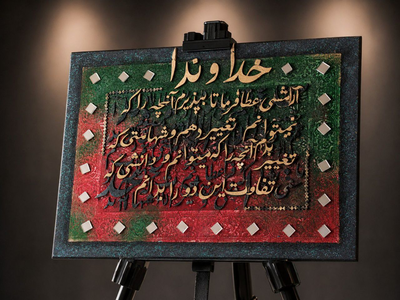 خداوندا
آرامشی عطا فرما تا بپذیرم آنچه را که
نمیتوانم تغییر دهم و شهامتی که
تغییر دهم آنچه را که میتوانم و دانشی که
تفاوت این دو را بدانم